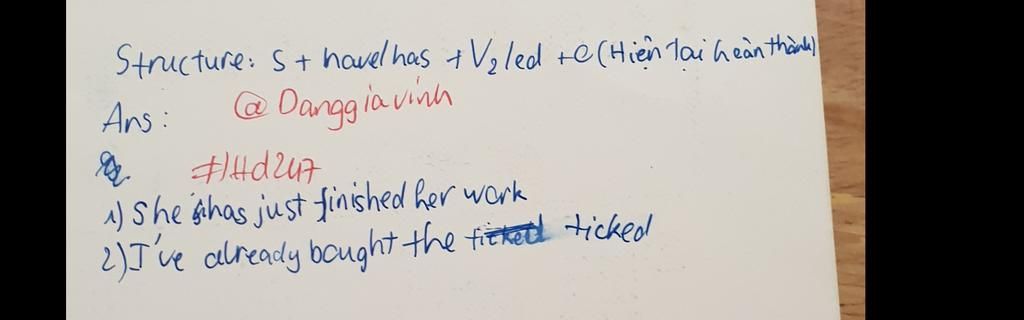 Structure: S + have/has + V2/ed + O (Hiện tại hoàn thành)
Ans: @Danggiavinh
#Hd247
1) She has just finished her work
2) I've already bought the ticked